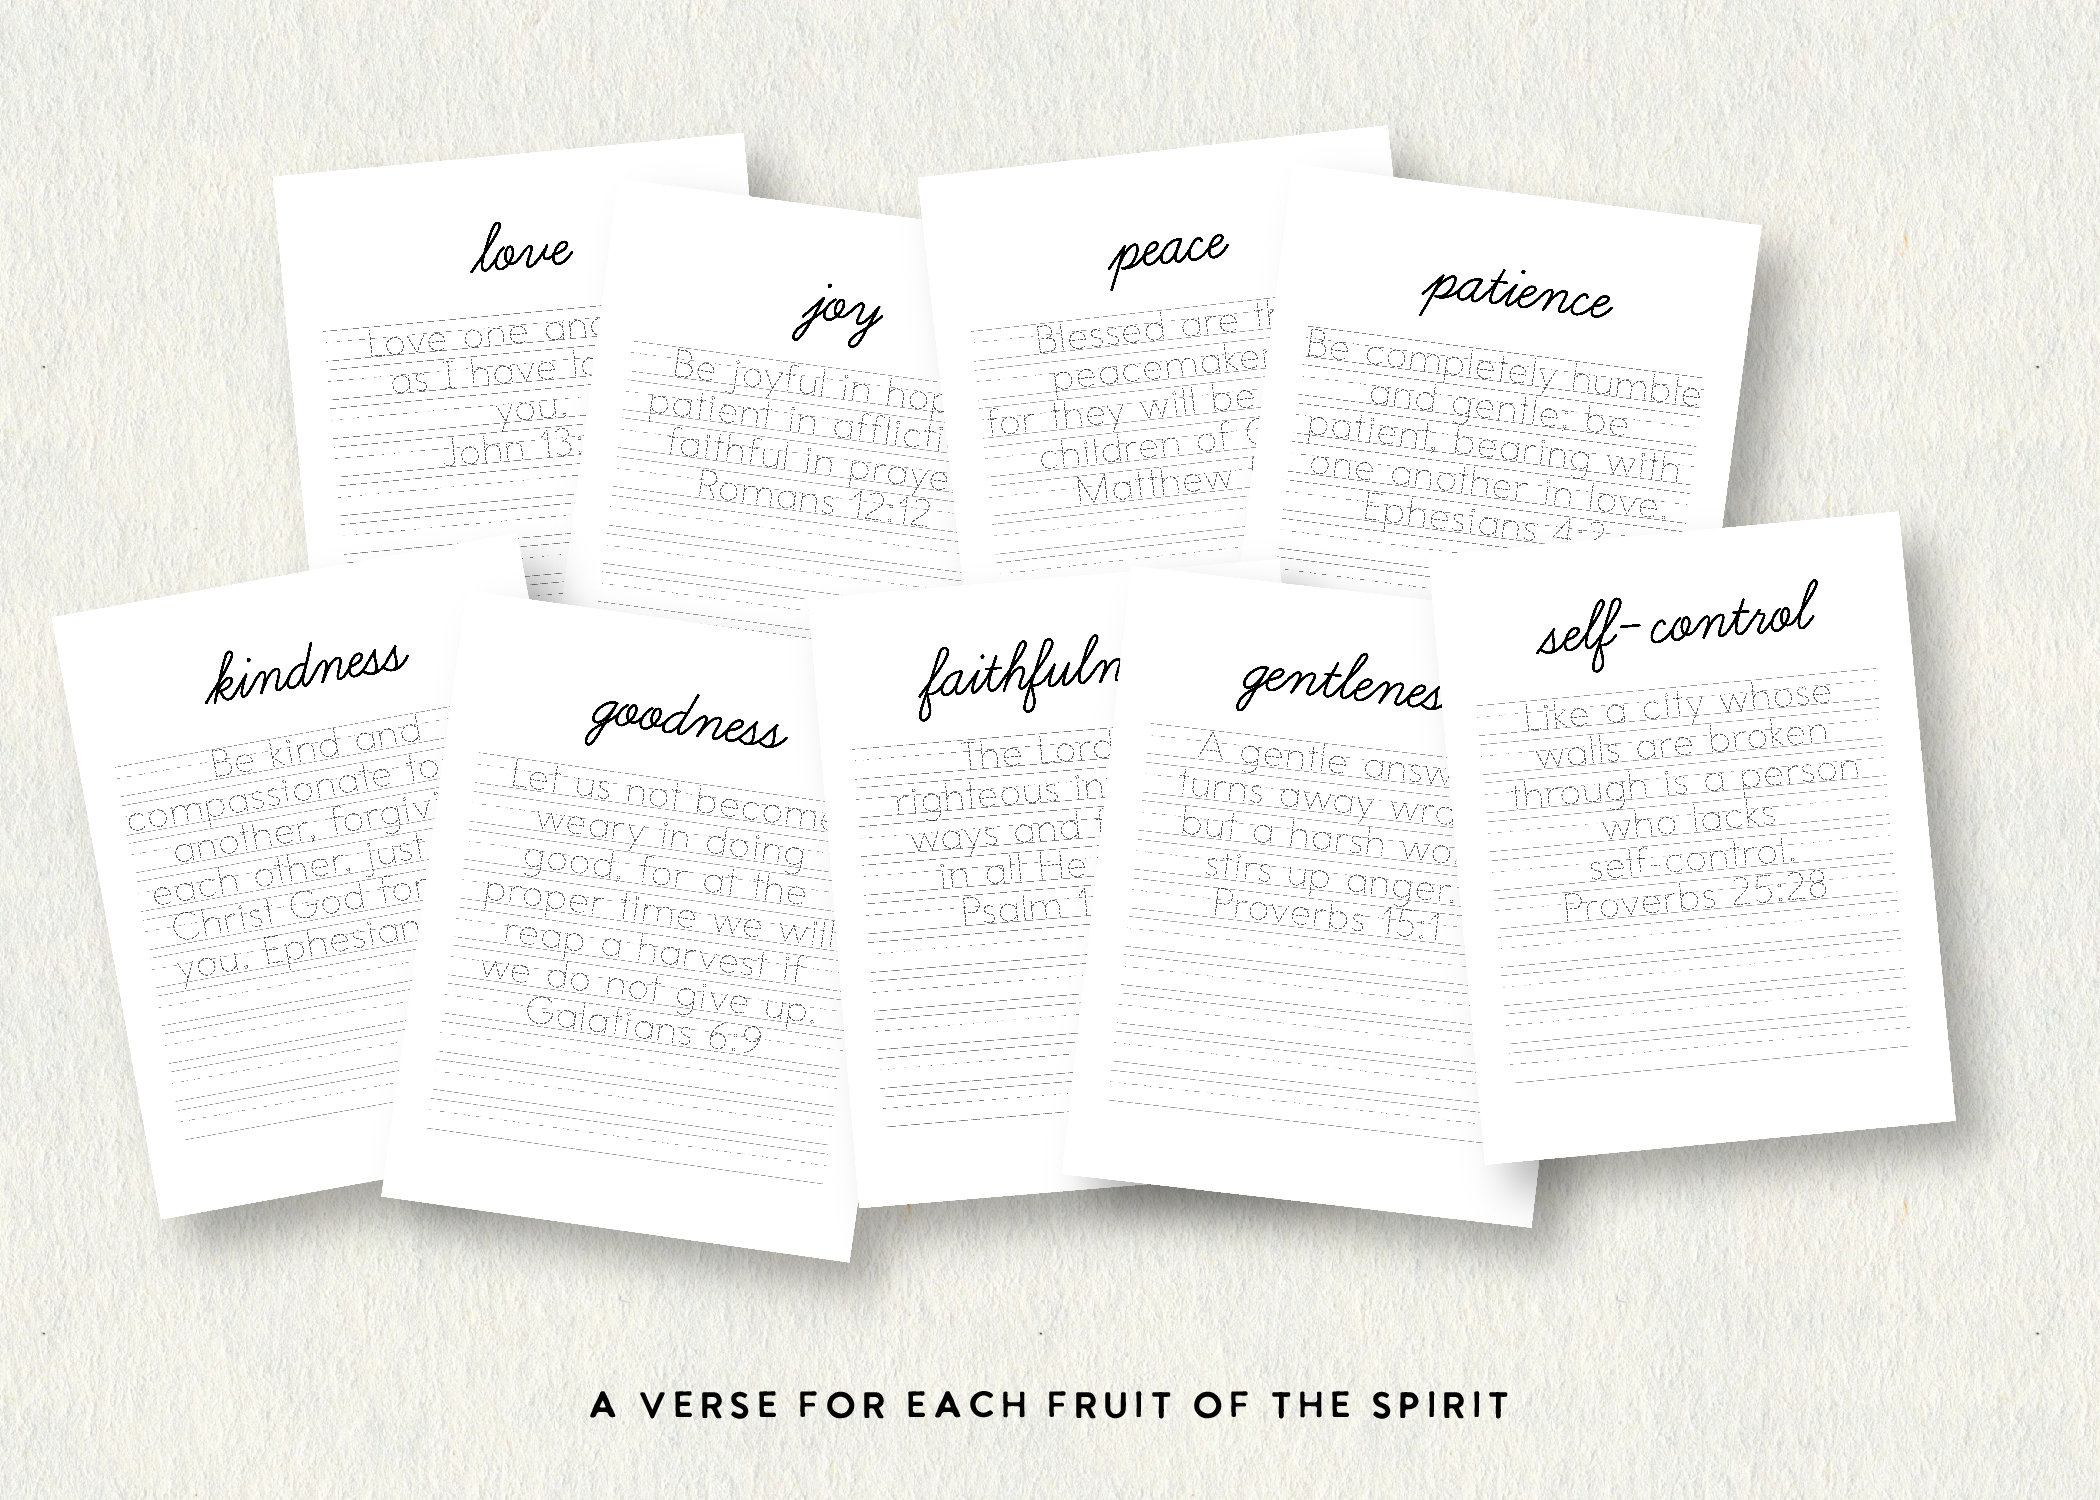 love
Love one
as I have
you.
John 13:
joy
Be joyful in
patient in
faithful in
Romans 12:12
peace
Blessed are
for they will be
children of
Matthew
patience
Be completely humble
and gentle; be
patient, bearing with
one another in love.
Ephesians 4:2
kindness
Be kind and
compassionate
another,
each other, just
Christ God
you.
goodness
Let us not become
weary in doing
good, for at the
proper time we will
reap a harvest if
we do not give up.
Galatians 6:9
faithfuln
The Lord
righteous in
ways and
in all He
Psalm 1
gentlenes
A gentle answ
turns away
but a harsh
stirs up anger.
Proverbs 15:1
self-control
Like a city whose
walls are broken
through is a person
who lacks
self-control.
Proverbs 25:28
A VERSE FOR EACH FRUIT OF THE SPIRIT